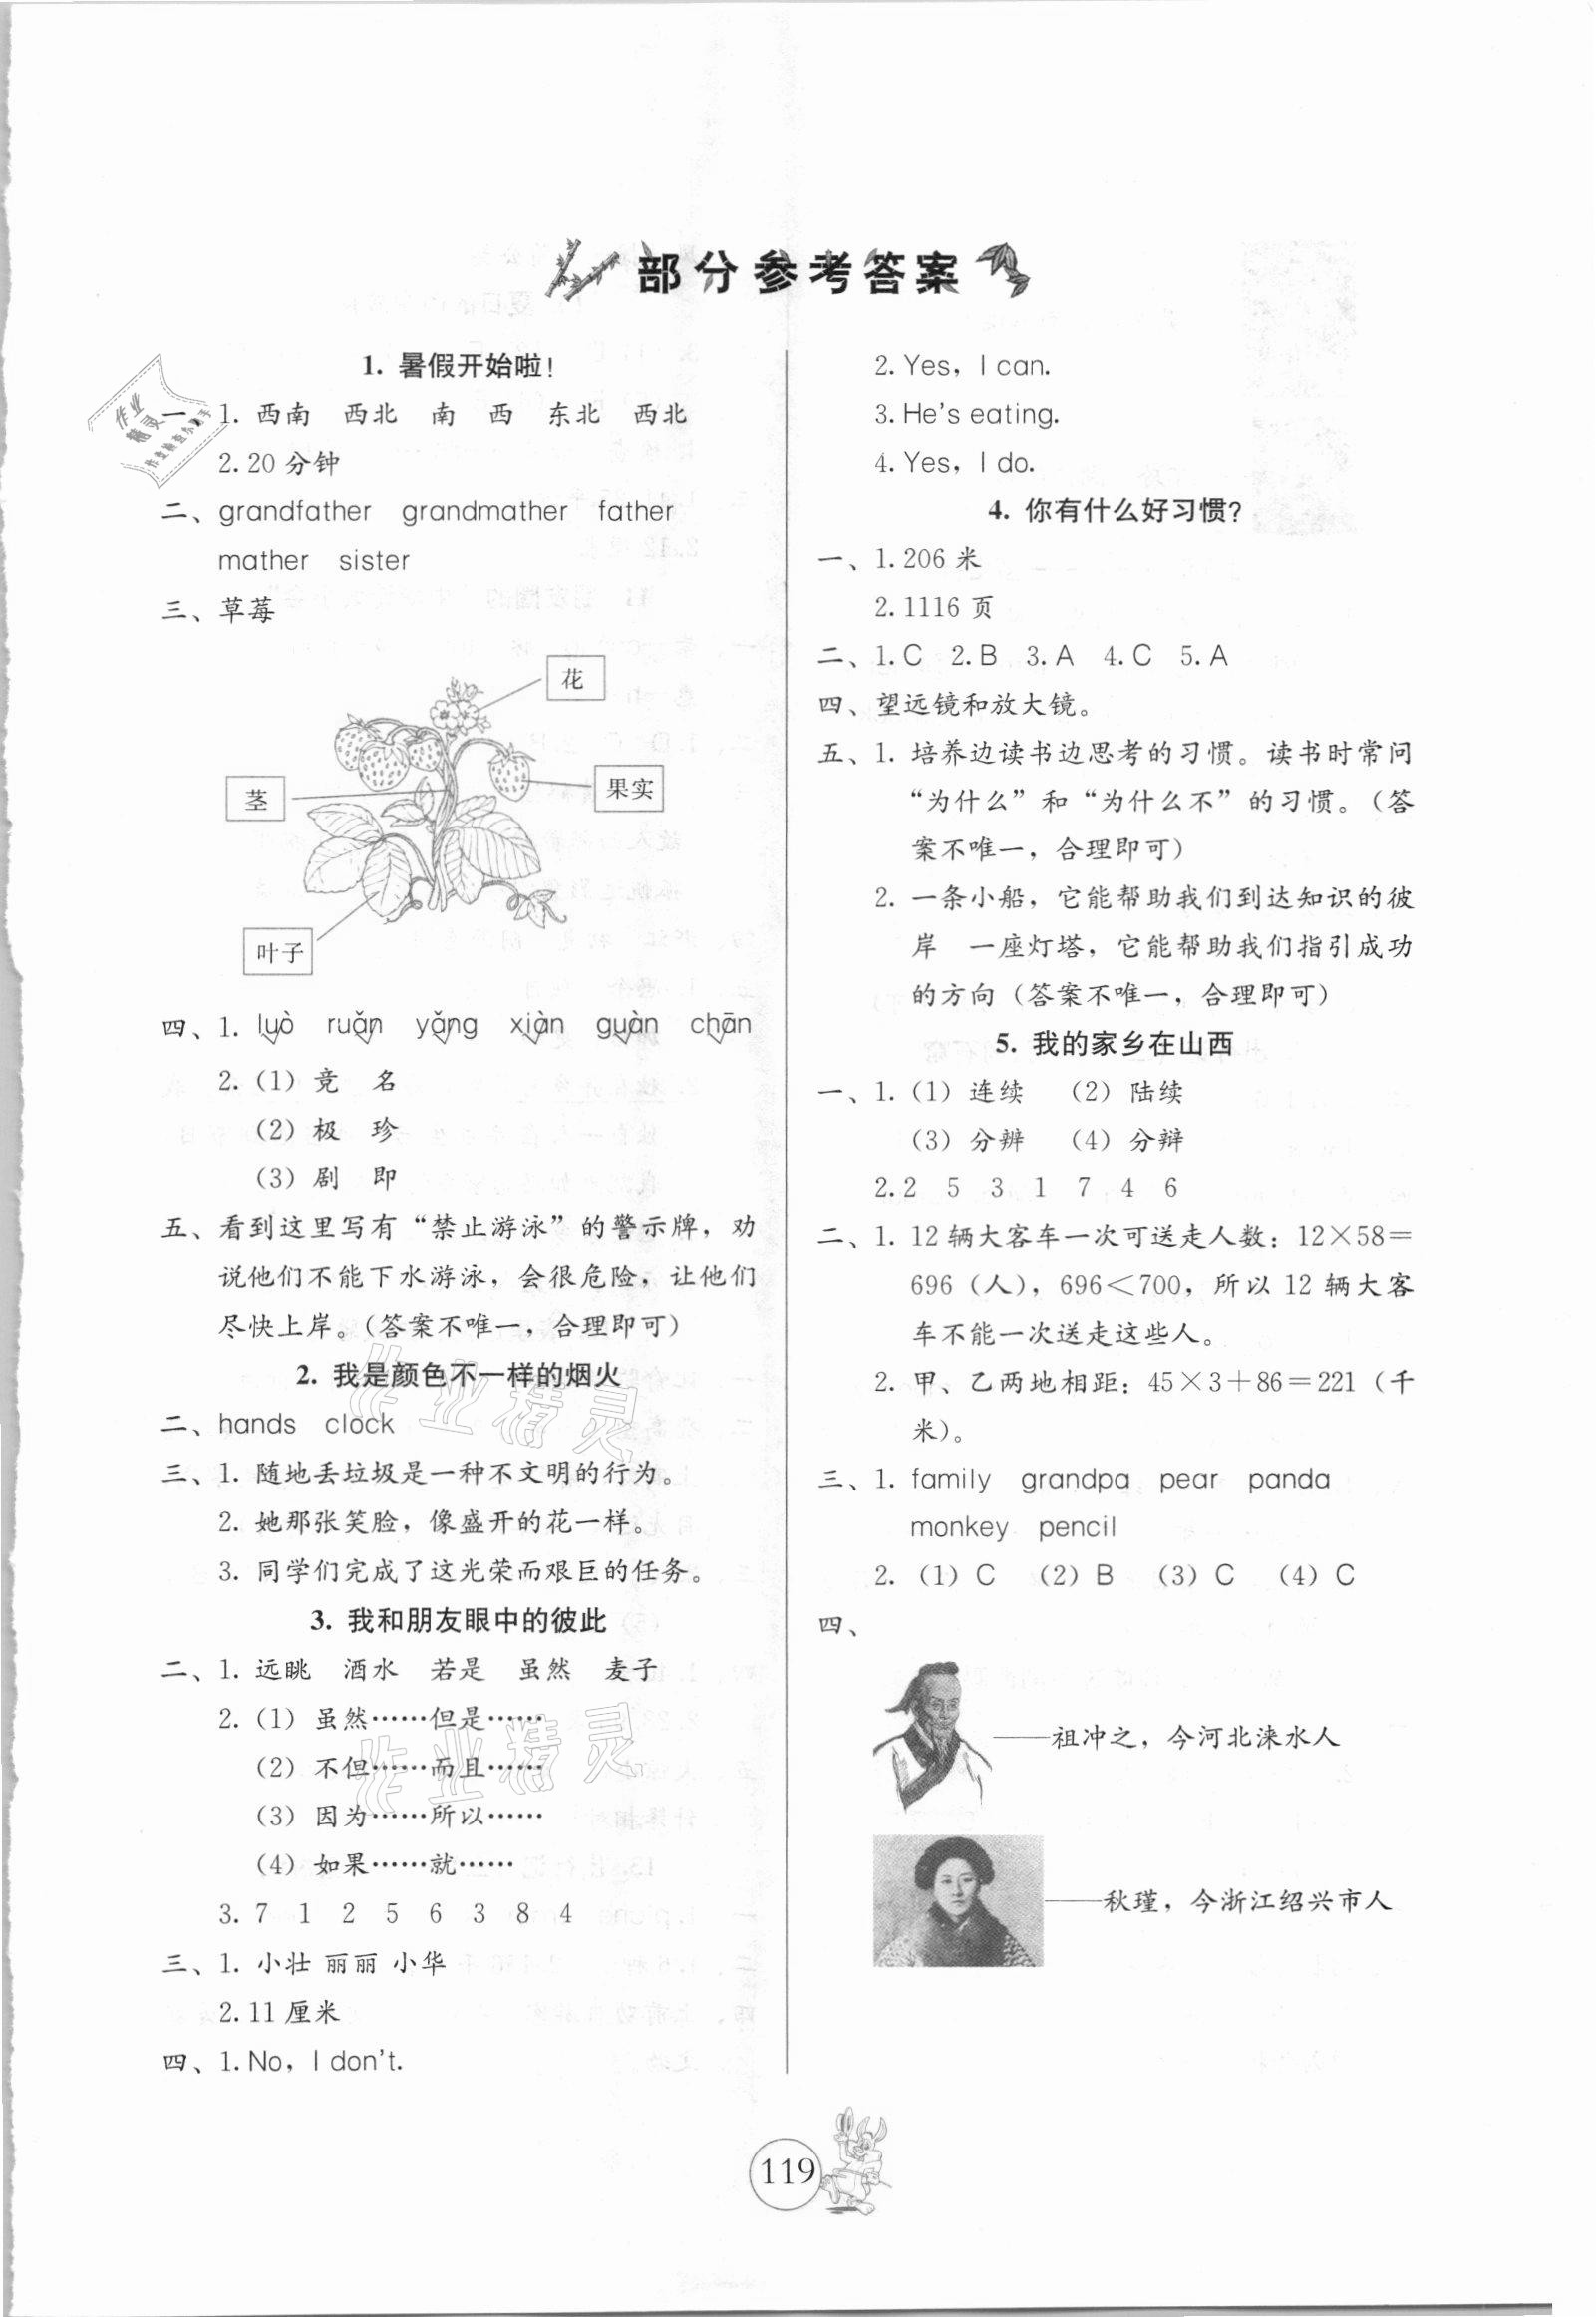 部分参考答案
1. 暑假开始啦!
一、1. 西南 西北 南 西 东北 西北
2.20 分钟
二、grandfather grandmather father
mather sister
三、草莓
花
茎
果实
叶子
四、1. luò ruǎn yǎng xiàn guàn chān
2. (1) 竞 名
(2) 极 珍
(3) 剧 即
五、看到这里写有“禁止游泳”的警示牌，劝
说他们不能下水游泳，会很危险，让他们
尽快上岸。(答案不唯一，合理即可)
2. 我是颜色不一样的烟火
二、hands clock
三、1. 随地丢垃圾是一种不文明的行为。
2. 她那张笑脸，像盛开的花一样。
3. 同学们完成了这光荣而艰巨的任务。
3. 我和朋友眼中的彼此
二、1. 远眺 酒水 若是 虽然 麦子
2. (1) 虽然……但是……
(2) 不但……而且……
(3) 因为……所以……
(4) 如果……就……
3. 7 1 2 5 6 3 8 4
三、1. 小壮 丽丽 小华
2.11 厘米
四、1. No, I don't.
2. Yes, I can.
3. He's eating.
4. Yes, I do.
4. 你有什么好习惯?
一、1. 206 米
2. 1116 页
二、1. C 2. B 3. A 4. C 5. A
四、望远镜和放大镜。
五、1. 培养边读书边思考的习惯。读书时常问
“为什么”和“为什么不”的习惯。(答
案不唯一，合理即可)
2. 一条小船，它能帮助我们到达知识的彼
岸 一座灯塔，它能帮助我们指引成功
的方向 (答案不唯一，合理即可)
5. 我的家乡在山西
一、1. (1) 连续 (2) 陆续
(3) 分辨 (4) 分辩
2. 2 5 3 1 7 4 6
二、1. 12 辆大客车一次可送走人数: 12×58=
696 (人)，696<700，所以 12 辆大客
车不能一次送走这些人。
2. 甲、乙两地相距: 45×3+86=221 (千
米)。
三、1. family grandpa pear panda
monkey pencil
2. (1) C (2) B (3) C (4) C
四、
——祖冲之，今河北涞水人
——秋瑾，今浙江绍兴市人
119
作业精灵
作业精灵
作业精灵